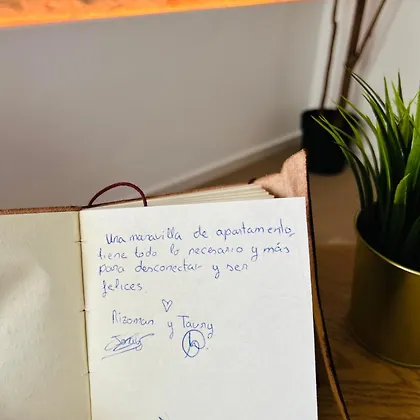 Una maravilla de apartamento,
tiene todo lo necesario y más
para desconectar y ser
felices.
y